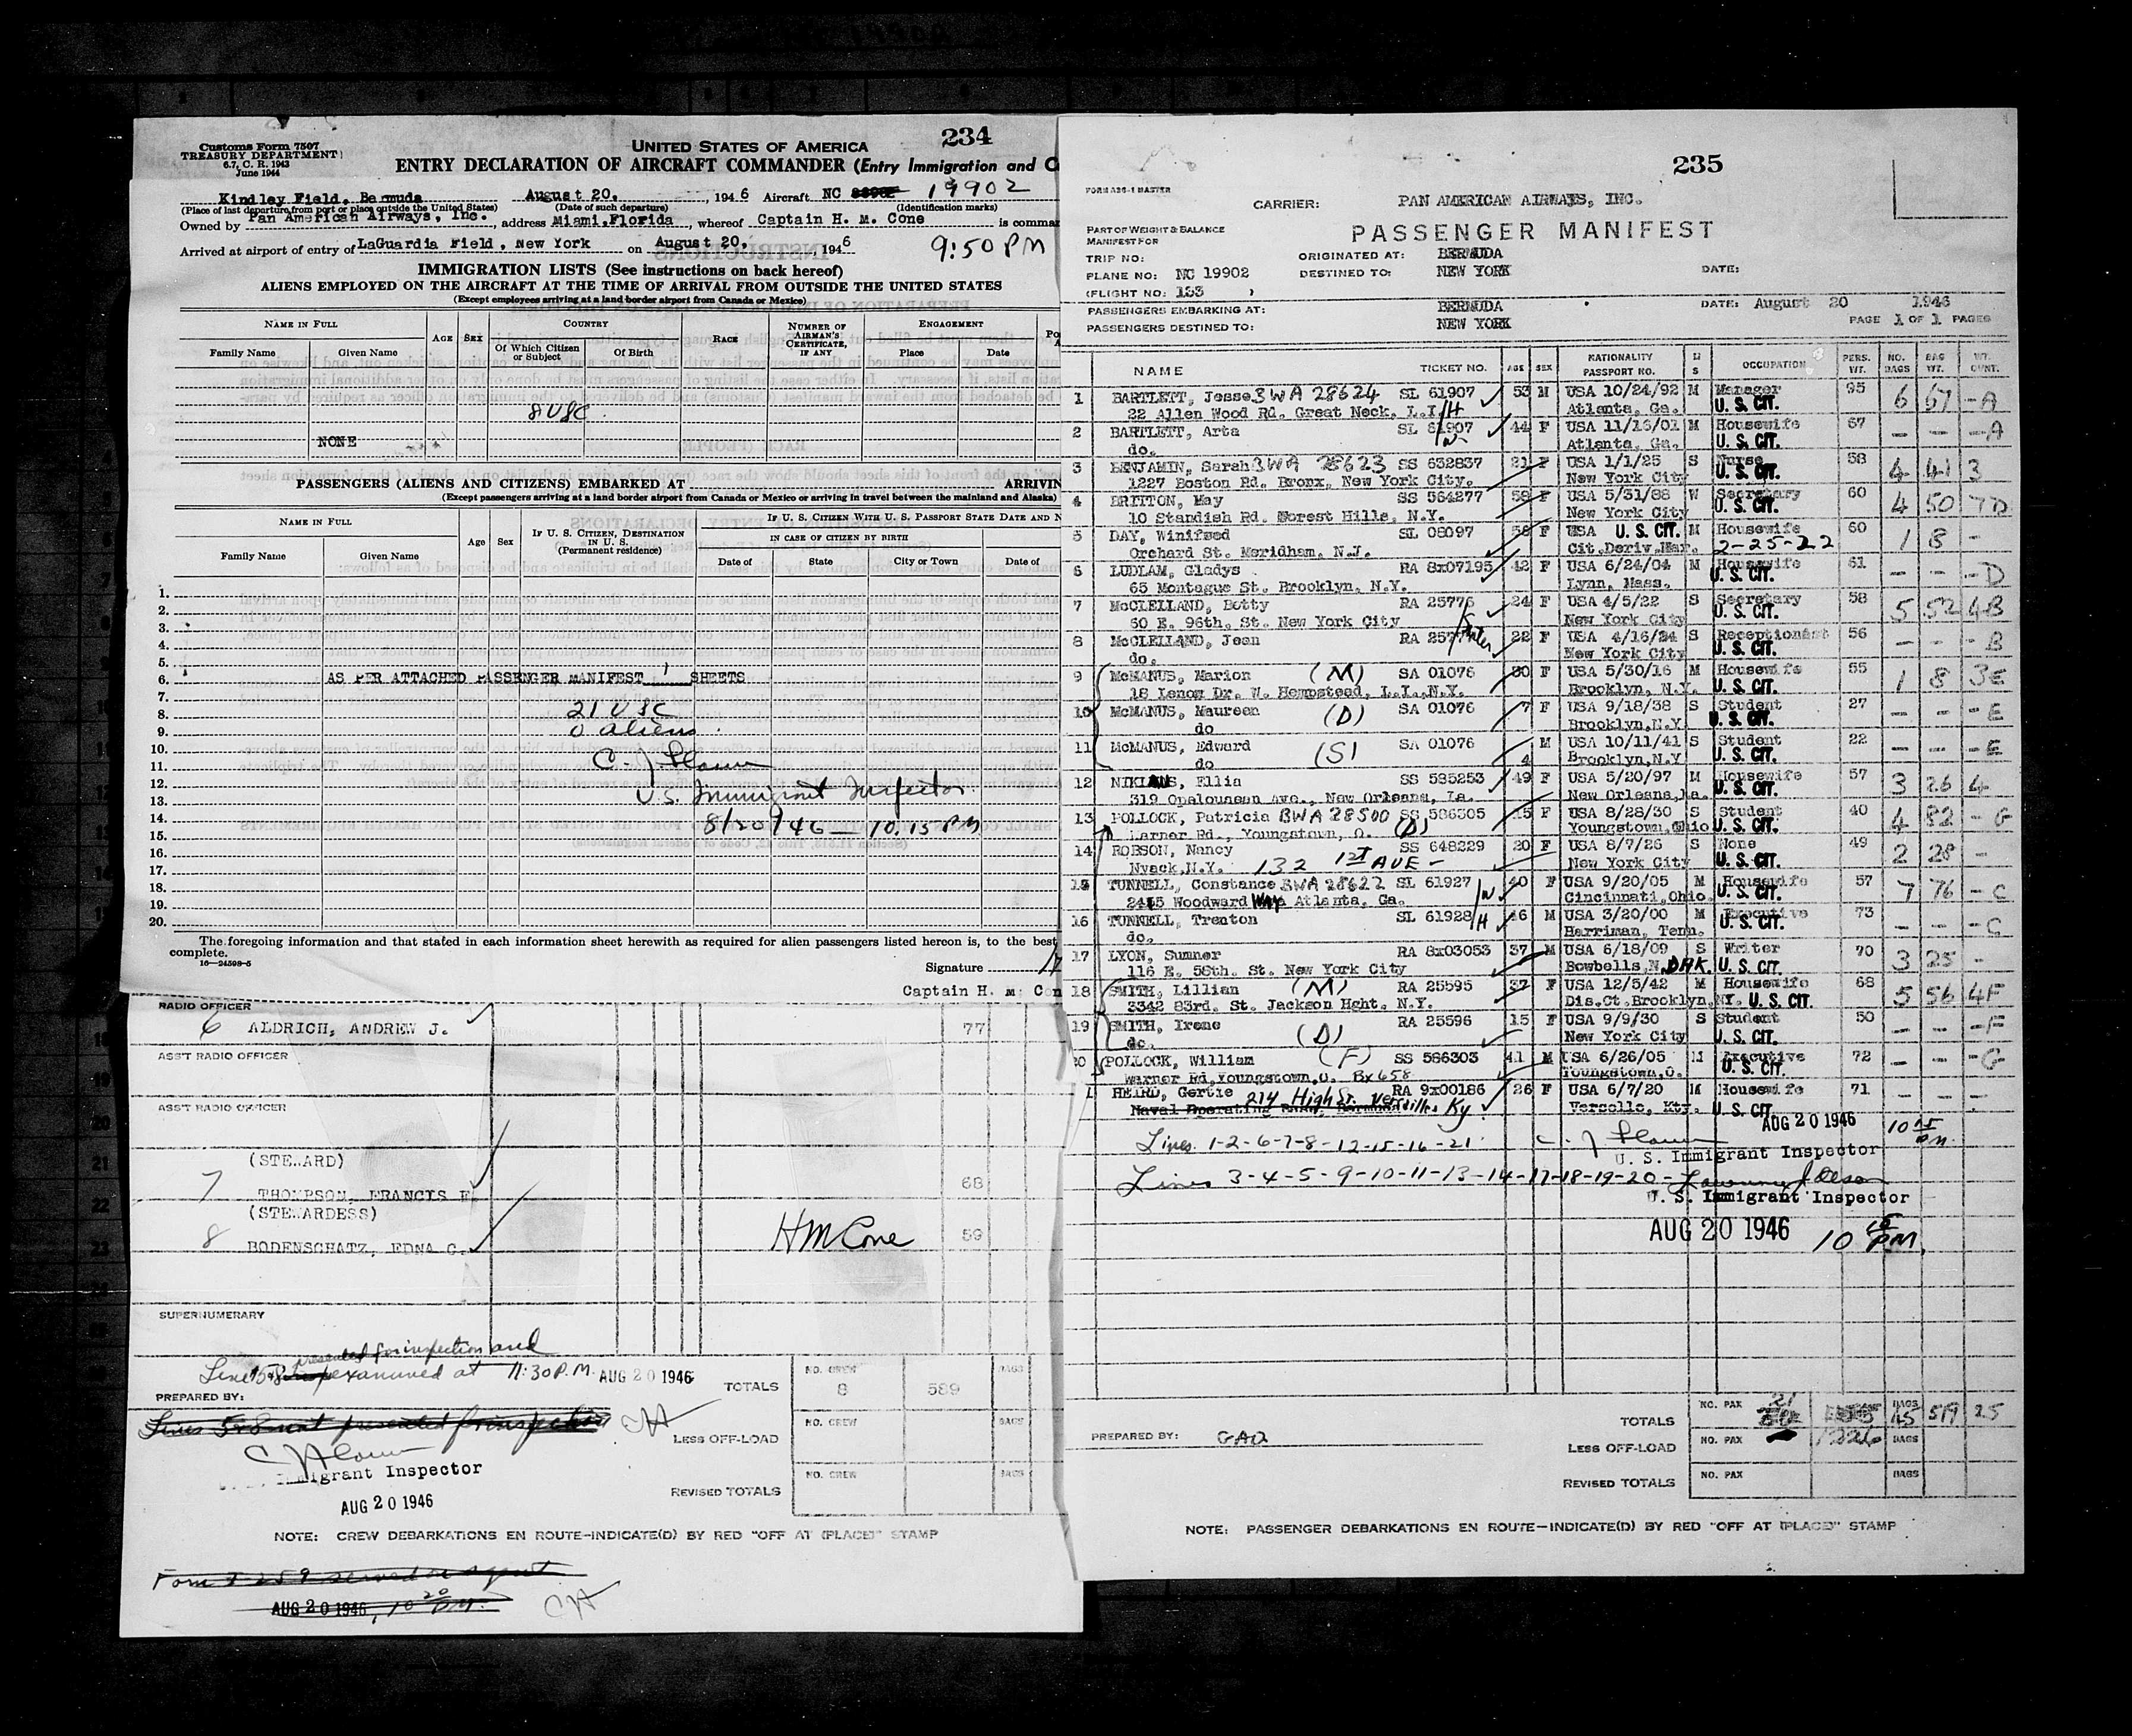 234
Customs Form 7507
TREASURY DEPARTMENT
6.7, C. R. 1943
June 1944
UNITED STATES OF AMERICA
ENTRY DECLARATION OF AIRCRAFT COMMANDER (Entry Immigration and
Kindley Field, Bermuda August 20, , 1946 Aircraft NC 19902
(Place of last departure from port or place outside the United States) (Date of such departure) (Identification marks)
Owned by Pan American Airways, Inc. , address Miami, Florida , whereof Captain H. M. Cone is comma
Arrived at airport of entry of LaGuardia Field, New York on August 20, , 1946 9:50 PM
IMMIGRATION LISTS (See instructions on back hereof)
ALIENS EMPLOYED ON THE AIRCRAFT AT THE TIME OF ARRIVAL FROM OUTSIDE THE UNITED STATES
(Except employees arriving at a land border airport from Canada or Mexico)
NAME IN FULL AGE SEX COUNTRY RACE NUMBER OF AIRMAN'S CERTIFICATE, IF ANY ENGAGEMENT
Family Name Given Name Of Which Citizen or Subject Of Birth Place Date
8 USC
NONE
PASSENGERS (ALIENS AND CITIZENS) EMBARKED AT ARRIVIN
(Except passengers arriving at a land border airport from Canada or Mexico or arriving in travel between the mainland and Alaska)
NAME IN FULL Age Sex IF U. S. CITIZEN, DESTINATION IN U. S. (Permanent residence) IF U. S. CITIZEN WITH U. S. PASSPORT STATE DATE AND N
IN CASE OF CITIZEN BY BIRTH
Family Name Given Name Date of State City or Town Date of
1.
2.
3.
4.
5.
6. AS PER ATTACHED PASSENGER MANIFEST 1 SHEETS
7.
8. 21 USC
9. 0 aliens
10.
11.
12.
13. U.S. Immigrant Inspector
14.
15. 8/20/46 — 10.15 PM
16.
17.
18.
19.
20.
The foregoing information and that stated in each information sheet herewith as required for alien passengers listed hereon is, to the best
complete.
16—24598-5
Signature
Captain H. M. Con
RADIO OFFICER
6 ALDRICH, ANDREW J. 77
ASS'T RADIO OFFICER
ASS'T RADIO OFFICER
(STEWARD)
7 THOMPSON, FRANCIS E. 68
(STEWARDESS)
8 BODENSCHATZ, EDNA C. HM Cone 59
SUPERNUMERARY
presented for inspection and
examined at 11:30 P.M. AUG 20 1946
PREPARED BY:
TOTALS NO. CREW 8 589 BAGS
Lines 5 & 8 not presented for inspection
LESS OFF-LOAD NO. CREW BAGS
Immigrant Inspector
REVISED TOTALS NO. CREW BAGS
AUG 20 1946
NOTE: CREW DEBARKATIONS EN ROUTE—INDICATE(D) BY RED "OFF AT (PLACE)" STAMP
Form I 259 served on agent
AUG 20 1946, 10 20 PM.
235
FORM A26-1 MASTER
CARRIER: PAN AMERICAN AIRWAYS, INC.
PART OF WEIGHT & BALANCE
MANIFEST FOR
PASSENGER MANIFEST
TRIP NO: ORIGINATED AT: BERMUDA
PLANE NO: NC 19902 DESTINED TO: NEW YORK DATE:
(FLIGHT NO: 133 )
PASSENGERS EMBARKING AT: BERMUDA DATE: August 20 1946
PASSENGERS DESTINED TO: NEW YORK PAGE 1 OF 1 PAGES
NAME TICKET NO. AGE SEX NATIONALITY PASSPORT NO. M S OCCUPATION PERS. WT. NO. BAGS BAG WT. WT. CUNT.
1 BARTLETT, Jesse BWA 28624 SL 61907 53 M USA 10/24/92 M Manager 95 6 57 - A
22 Allen Wood Rd. Great Neck, L.I. H Atlanta, Ga. U. S. CIT.
2 BARTLETT, Arta SL 61907 44 F USA 11/16/01 M Housewife 67 - - - A
do. W Atlanta, Ga. U. S. CIT.
3 BENJAMIN, Sarah BWA 28623 SS 632837 21 F USA 1/1/25 S Nurse 58 4 41 3
1227 Boston Rd. Bronx, New York City. New York City U. S. CIT.
4 BRITTON, May SS 564277 58 F USA 5/31/88 W Secretary 60 4 50 7D
10 Standish Rd. Forest Hills, N.Y. New York City U. S. CIT.
5 DAY, Winifred SL 08097 58 F USA U. S. CIT. M Housewife 60 1 8 -
Orchard St. Meridham, N.J. Cit.Deriv.Mar. 2-25-22
6 LUDLAM, Gladys RA 8x07195 42 F USA 6/24/04 M Housewife 61 - - - D
65 Montague St. Brooklyn, N.Y. Lynn, Mass. U. S. CIT.
7 McCLELLAND, Betty RA 25776 24 F USA 4/5/22 S Secretary 58 5 52 4B
60 E. 96th. St. New York City New York City U. S. CIT.
8 McCLELLAND, Jean 22 F USA 4/16/24 S Receptionist 56 - - - B
do. New York City U. S. CIT.
9 McMANUS, Marion (M) SA 01076 30 F USA 5/30/16 M Housewife 55 1 8 3E
18 Lenow Dr. W. Hempstead, L.I.,N.Y. Brooklyn, N.Y. U. S. CIT.
10 McMANUS, Maureen (D) SA 01076 7 F USA 9/18/38 S Student 27 - - - E
do Brooklyn,N.Y U. S. CIT.
11 McMANUS, Edward (S) SA 01076 4 M USA 10/11/41 S Student 22 - - - E
do Brooklyn,N.Y U. S. CIT.
12 NIKLAUS, Ellia SS 585253 49 F USA 5/20/97 M Housewife 57 3 26 4
319 Opalousean Ave., New Orleans, La. New Orleans,La. U. S. CIT.
13 POLLOCK, Patricia BWA 28500 SS 586305 15 F USA 8/28/30 S Student 40 4 82 - G
Larner Rd., Youngstown, O. (D) Youngstown,Ohio U. S. CIT.
14 ROBSON, Nancy SS 648229 20 F USA 8/7/26 S None 49 2 28 -
Nyack,N.Y. 132 1ST AVE - New York City U. S. CIT.
15 TUNNELL, Constance BWA 28622 SL 61927 W 40 F USA 9/20/05 M Housewife 57 7 76 - C
2415 Woodward Way Atlanta, Ga. Cincinnati,Ohio. U. S. CIT.
16 TUNNELL, Trenton SL 61928 H 46 M USA 3/20/00 M Executive 73 - - - C
do. Harriman, Tenn. U. S. CIT.
17 LYON, Sumner RA 8x03053 37 M USA 6/18/09 S Writer 70 3 25 -
116 E. 58th. St. New York City Bowbells,N.DAK. U. S. CIT.
18 SMITH, Lillian (M) RA 25595 37 F USA 12/5/42 M Housewife 68 5 56 4F
3342 83rd. St. Jackson Hght. N.Y. Dis.Ct.Brooklyn,NY. U. S. CIT.
19 SMITH, Irene (D) RA 25596 15 F USA 9/9/30 S Student 50 - - - F
do. New York City U. S. CIT.
20 POLLOCK, William (F) SS 586303 41 M USA 6/26/05 M Executive 72 - - - G
Warner Rd,Youngstown,O. Bx 658 Youngstown,O. U. S. CIT.
1 HEIRD, Gertie RA 9x00186 26 F USA 6/7/20 M Housewife 71 - - -
214 High St. Versailles Ky Versolle, Kty. U. S. CIT.
AUG 20 1946 10 15 PM.
Lines 1-2-6-7-8-12-15-16-21.
U. S. Immigrant Inspector
Lines 3-4-5-9-10-11-13-14-17-18-19-20-
U. S. Immigrant Inspector
AUG 20 1946 10 15 PM.
TOTALS NO. PAX 21 BAGS 45 519 25
PREPARED BY: GAO
LESS OFF-LOAD NO. PAX 1226 BAGS
REVISED TOTALS NO. PAX BAGS
NOTE: PASSENGER DEBARKATIONS EN ROUTE—INDICATE(D) BY RED "OFF AT (PLACE)" STAMP